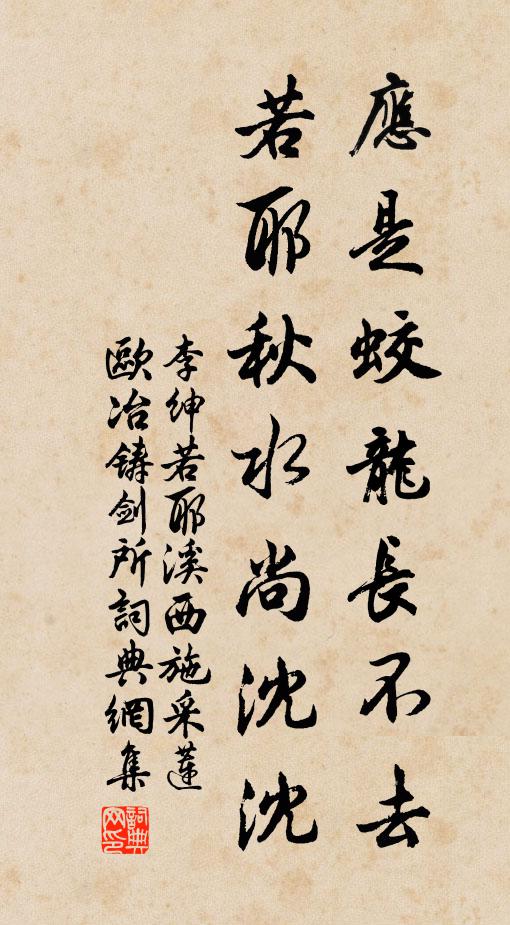 應是蛟龍長不去
若耶秋水尚沈沈
李紳若耶溪西施采蓮
歐冶鑄劍所詞典網集
詞典网印